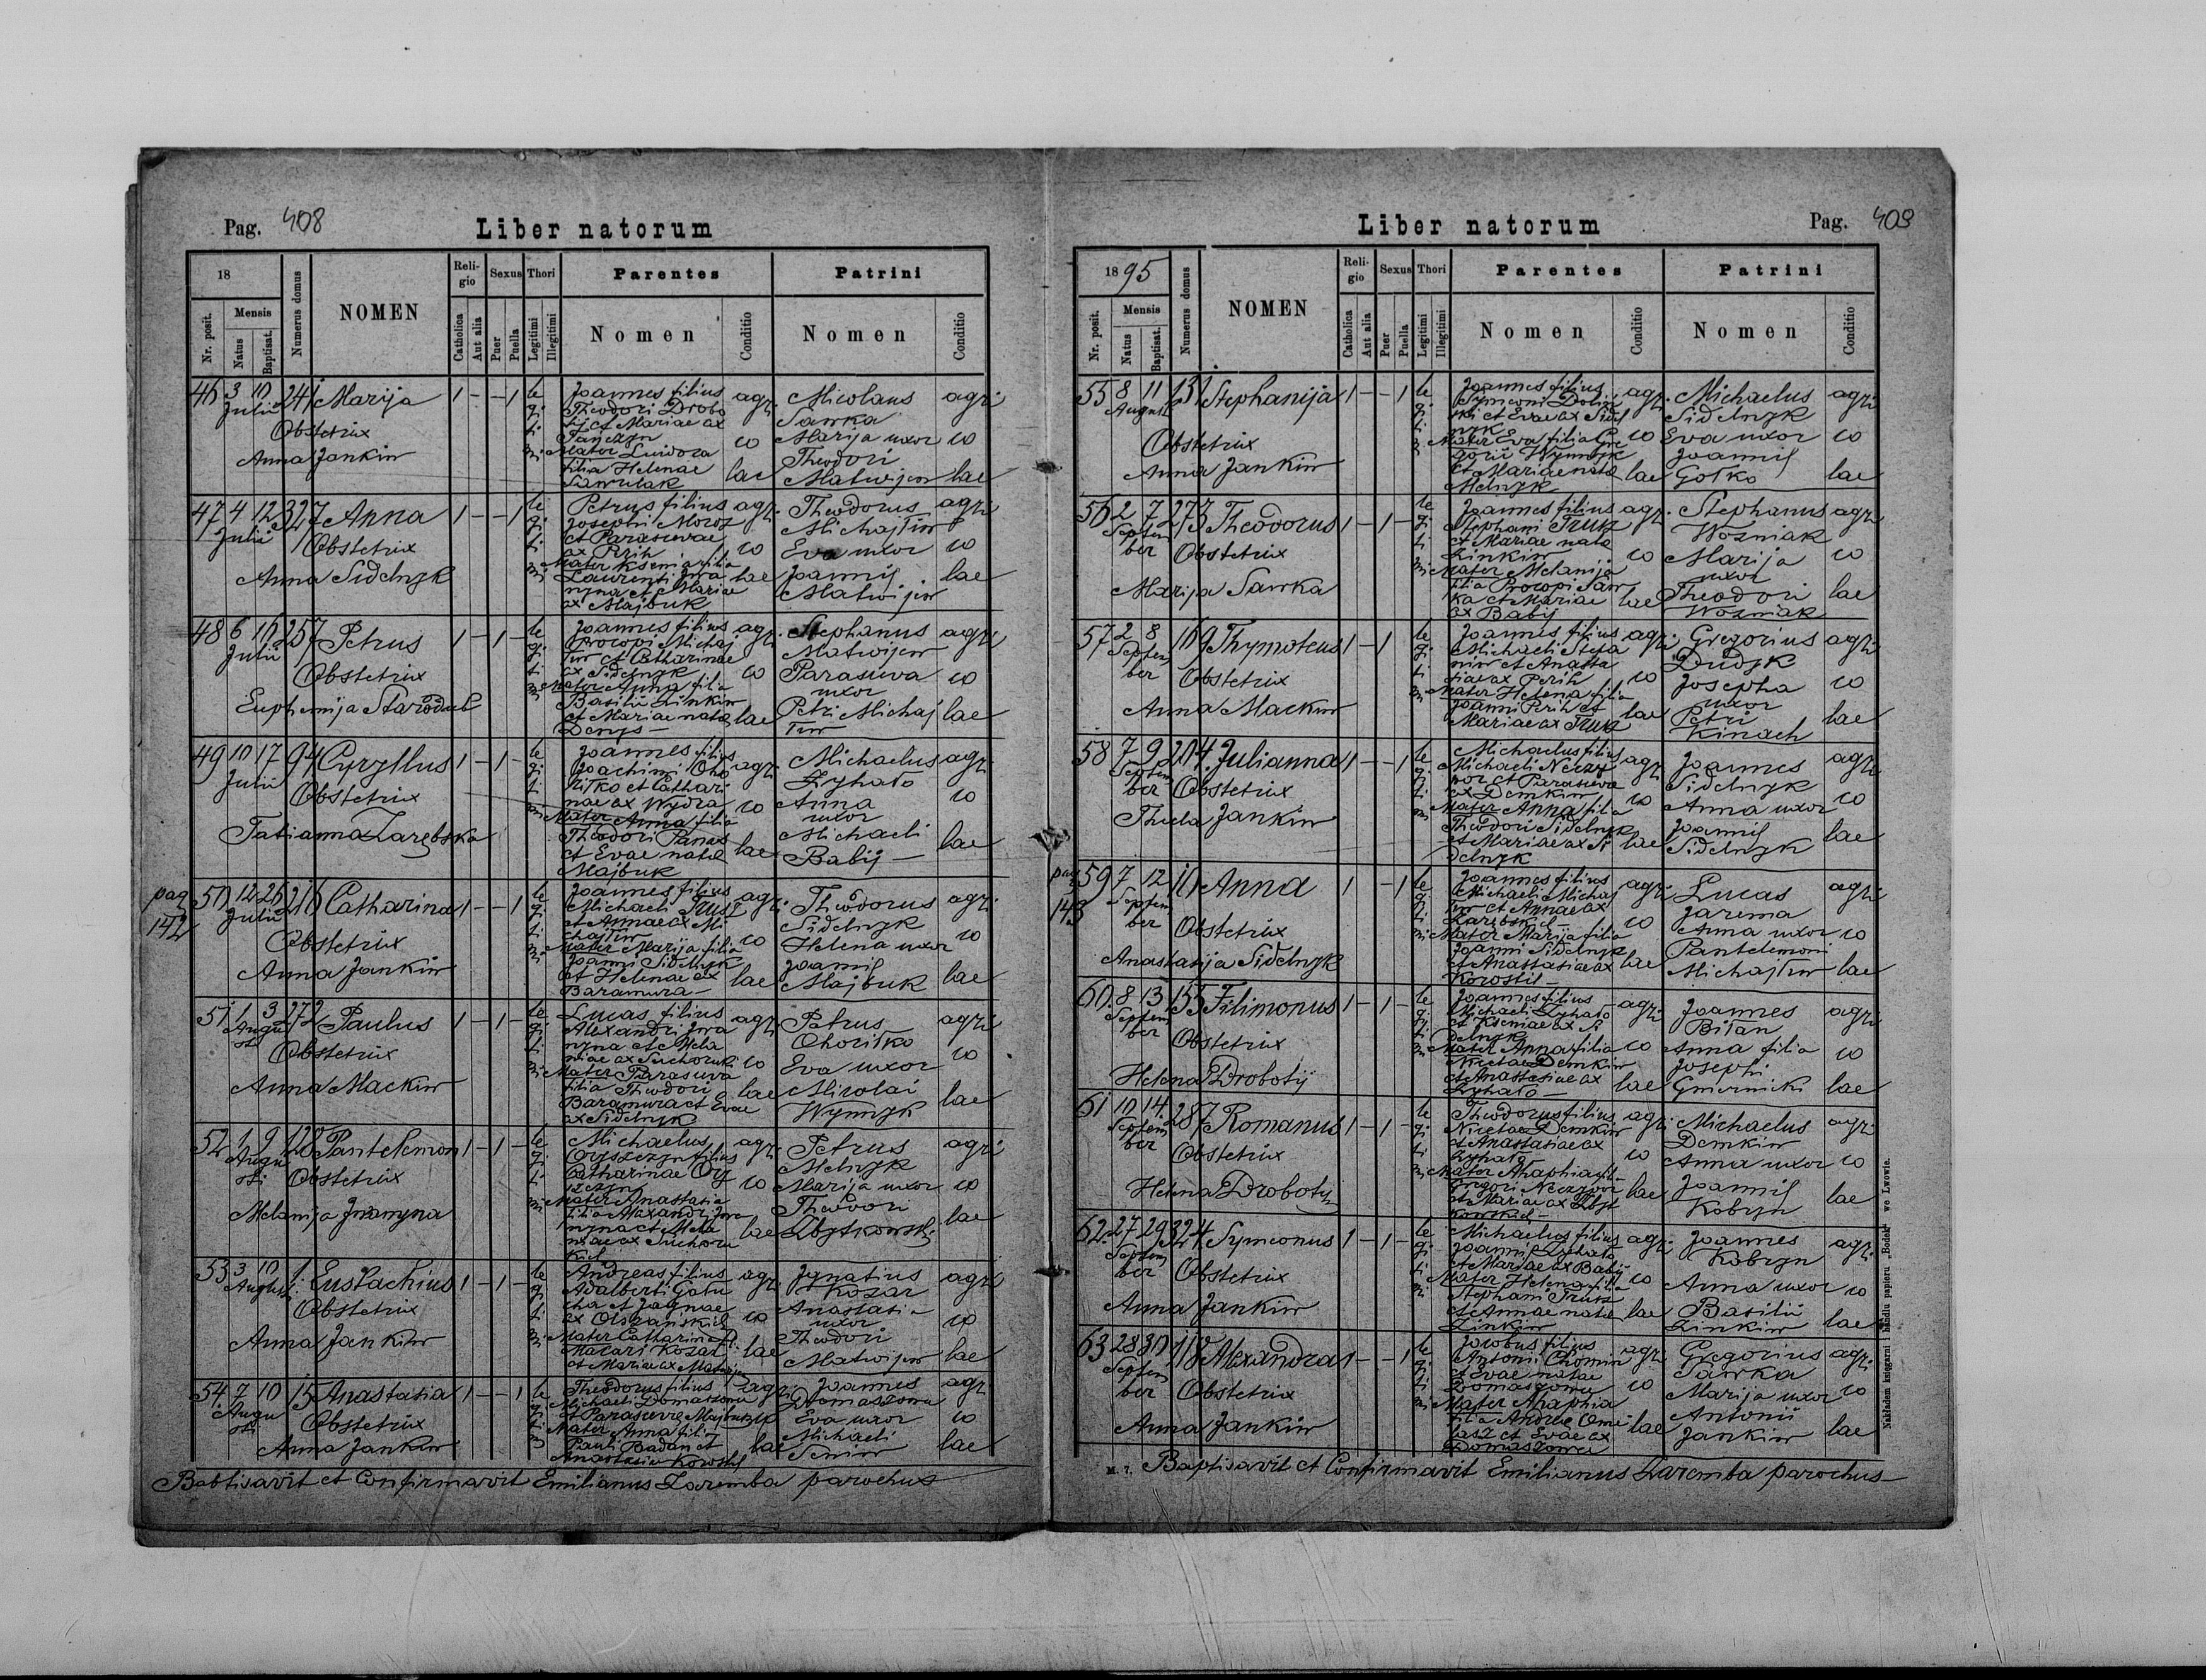 Pag. 408
Liber natorum
18
Nr. posit.
Mensis
Natus
Baptisat.
Numerus domus
NOMEN
Religio
Catholica
Aut alia
Sexus
Puer
Puella
Thori
Legitimi
Illegitimi
Parentes
Nomen
Conditio
Patrini
Nomen
Conditio
46 3 10 241 Marija 1 - - 1
Julii
Obstetrix
Anna Jankiw
legitimi
Joannes filius
Theodori Drobo
tij et Mariae ex
Tanczyn
Mater
filia Helenae
agricolae
Micolaus
Sawka
Marija uxor
Theodori
Matwijew
agricolae
47 4 12 327 Anna 1 - - 1
Julii
Obstetrix
Anna Sidelnyk
legitimi
Petrus filius
Josephi Moroz
et Parasevae
ex Perih
Mater Ksenia filia
Laurenti Iwa
nyna et Mariae
ex Majbuk
agricolae
Theodorus
Michajliw
Eva uxor
Joannis
Matwijew
agricolae
48 6 16 257 Petrus 1 - 1 -
Julii
Obstetrix
Euphemija Starodub
legitimi
Joannes filius
Procopi Michaj
liw et Catharinae
ex Sidelnyk
Mater Anna filia
Basilii Zinkiw
et Mariae nata
Denys
agricolae
Stephanus
Matwijew
Parasewa
uxor
Petri Michaj
liw
agricolae
49 10 17 94 Cyryllus 1 - 1 -
Julii
Obstetrix
Tatianna Zarębska
legitimi
Joannes filius
Joachimi Cho
ritko et Cathari
nae ex Wydra
Mater Anna filia
Theodori Panas
et Evae nata
Majbuk
agricolae
Michaelus
Zyhało
Anna
uxor
Michaeli
Babij
agricolae
pag 142
50 12 26 216 Catharina 1 - - 1
Julii
Obstetrix
Anna Jankiw
legitimi
Joannes filius
Michaeli Trusz
et Annae ex Mi
chajliw
Mater Marija filia
Joanni Sidelnyk
et Helenae ex
Baramura
agricolae
Theodorus
Sidelnyk
Helena uxor
Joannis
Majbuk
agricolae
51 1 3 272 Paulus 1 - 1 -
Augusti
Obstetrix
Anna Mackiw
legitimi
Lucas filius
Alexandri Iwa
nyna et Mela
niae ex Suchorukich
Mater Parasewa
filia Theodori
Baramura et Evae
ex Sidelnyk
agricolae
Petrus
Choritko
Eva uxor
Mikolai
Wynnyk
agricolae
52 1 9 128 Pantelemon 1 - 1 -
Augusti
Obstetrix
Melanija Iwanyna
legitimi
Michaelus
Oryszczyn filius
Catharinae Ory
szczyn
Mater Anastasia
filia Alexandri Iwa
nyna et Mela
niae ex Suchoru
kich
agricolae
Petrus
Melnyk
Marija uxor
Theodori
Zbytkowski
agricolae
53 3 10 1 Eustachius 1 - 1 -
Augusti
Obstetrix
Anna Jankiw
legitimi
Andreas filius
Adalberti Gotu
cha et Jagnae
ex Olszańskich
Mater Catharina fi.
Macari Kozar
et Mariae ex
agricolae
Ignatius
Kozar
Anastasia
uxor
Theodori
Matwijew
agricolae
54 7 10 15 Anastasia 1 - - 1
Augusti
Obstetrix
Anna Jankiw
legitimi
Theodorus filius
Michaeli Domaszowec
et Parasevae Majbuk
Mater Anna filia
Pauli Badan et
Anastasia
agricolae
Joannes
Domaszowec
Eva uxor
Michaeli
Seniw
agricolae
Babtisavit et Confirmavit Emilianus Zaremba parochus
Liber natorum
Pag. 409
1895
Nr. posit.
Mensis
Natus
Baptisat.
Numerus domus
NOMEN
Religio
Catholica
Aut alia
Sexus
Puer
Puella
Thori
Legitimi
Illegitimi
Parentes
Nomen
Conditio
Patrini
Nomen
Conditio
55 8 11 131 Stephanija 1 - - 1
Augusti
Obstetrix
Anna Jankiw
legitimi
Joannes filius
Symeoni Dolin
ski et Evae ex Sidel
nyk
Mater Eva filia Gre
gorii Wynnyk
et Mariae nata
Melnyk
agricolae
Michaelus
Sidelnyk
Eva uxor
Joannis
Gołko
agricolae
56 2 7 273 Theodorus 1 - 1 -
September
Obstetrix
Marija Sawka
legitimi
Joannes filius
Stephani Trusz
et Mariae nata
Zinkiw
Mater Melanija
filia Procopi Saw
ka et Mariae
ex Babij
agricolae
Stephanus
Wozniak
Marija
uxor
Theodori
Wozniak
agricolae
57 2 8 169 Thymoteus 1 - 1
September
Obstetrix
Anna Mackiw
legitimi
Joannes filius
Michaeli Stefa
niw et Anasta
siae ex Perih
Mater Helena filia
Joanni Perih et
Mariae ex Trusz
agricolae
Gregorius
Dudyk
Josepha
uxor
Petri
Kinach
agricolae
58 7 9 204 Julianna 1 - - 1
September
Obstetrix
Thecla Jankiw
legitimi
Michaelus filius
Michaeli Neczy
por et Parasevae
ex Demkiw
Mater Anna filia
Theodori Sidelnyk
et Mariae ex Si
delnyk
agricolae
Joannes
Sidelnyk
Anna uxor
Joannis
Sidelnyk
agricolae
pag 143
59 7 12 10 Anna 1 - 1
September
Obstetrix
Anastasija Sidelnyk
legitimi
Joannes filius
Michaeli Michaj
liw et Annae ex
Zarębskich
Mater Marija filia
Joanni Sidelnyk
et Anastasiae ex
Korostil
agricolae
Lucas
Jarema
Anna uxor
Pantelemoni
Michajliw
agricolae
60 8 13 155 Filimonus 1 - 1 -
September
Obstetrix
Helena Drobotij
legitimi
Joannes filius
Michaeli Zyhało
et Kseniae ex Si
delnyk
Mater Anna filia
Nicetae Demkiw
et Anastasiae ex
Zyhało
agricolae
Joannes
Biłan
Anna filia
Josephi
Gmernicki
agricolae
61 10 14 287 Romanus 1 - 1 -
September
Obstetrix
Helena Drobotij
legitimi
Theodorus filius
Nicetae Demkiw
et Anastasiae ex
Zyhało
Mater Ahaphia fil.
Gregori Neczypor
et Mariae ex Zbyt
kowskich
agricolae
Michaelus
Demkiw
Anna uxor
Joannis
Kobryn
agricolae
62 27 29 324 Symeonus 1 - 1 -
September
Obstetrix
Anna Jankiw
legitimi
Michaelus filius
Joannis Zyhało
et Mariae ex Babij
Mater Helena filia
Stephani Trusz
et Annae nata
Zinkiw
agricolae
Joannes
Kobryn
Anna uxor
Basilii
Zinkiw
agricolae
63 28 30 118 Alexandra 1 - - 1
September
Obstetrix
Anna Jankiw
legitimi
Jacobus filius
Antonii Chomin
et Evae natae
Domaszowec
Mater Ahaphia
filia Andreae Ome
lasz et Evae ex
Domaszowec
agricolae
Gregorius
Sawka
Marija uxor
Antonii
Jankiw
agricolae
M. 7.
Baptisavit et Confirmavit Emilianus Zaremba parochus
Nakładem księgarni i handlu papieru „Bodek" we Lwowie.